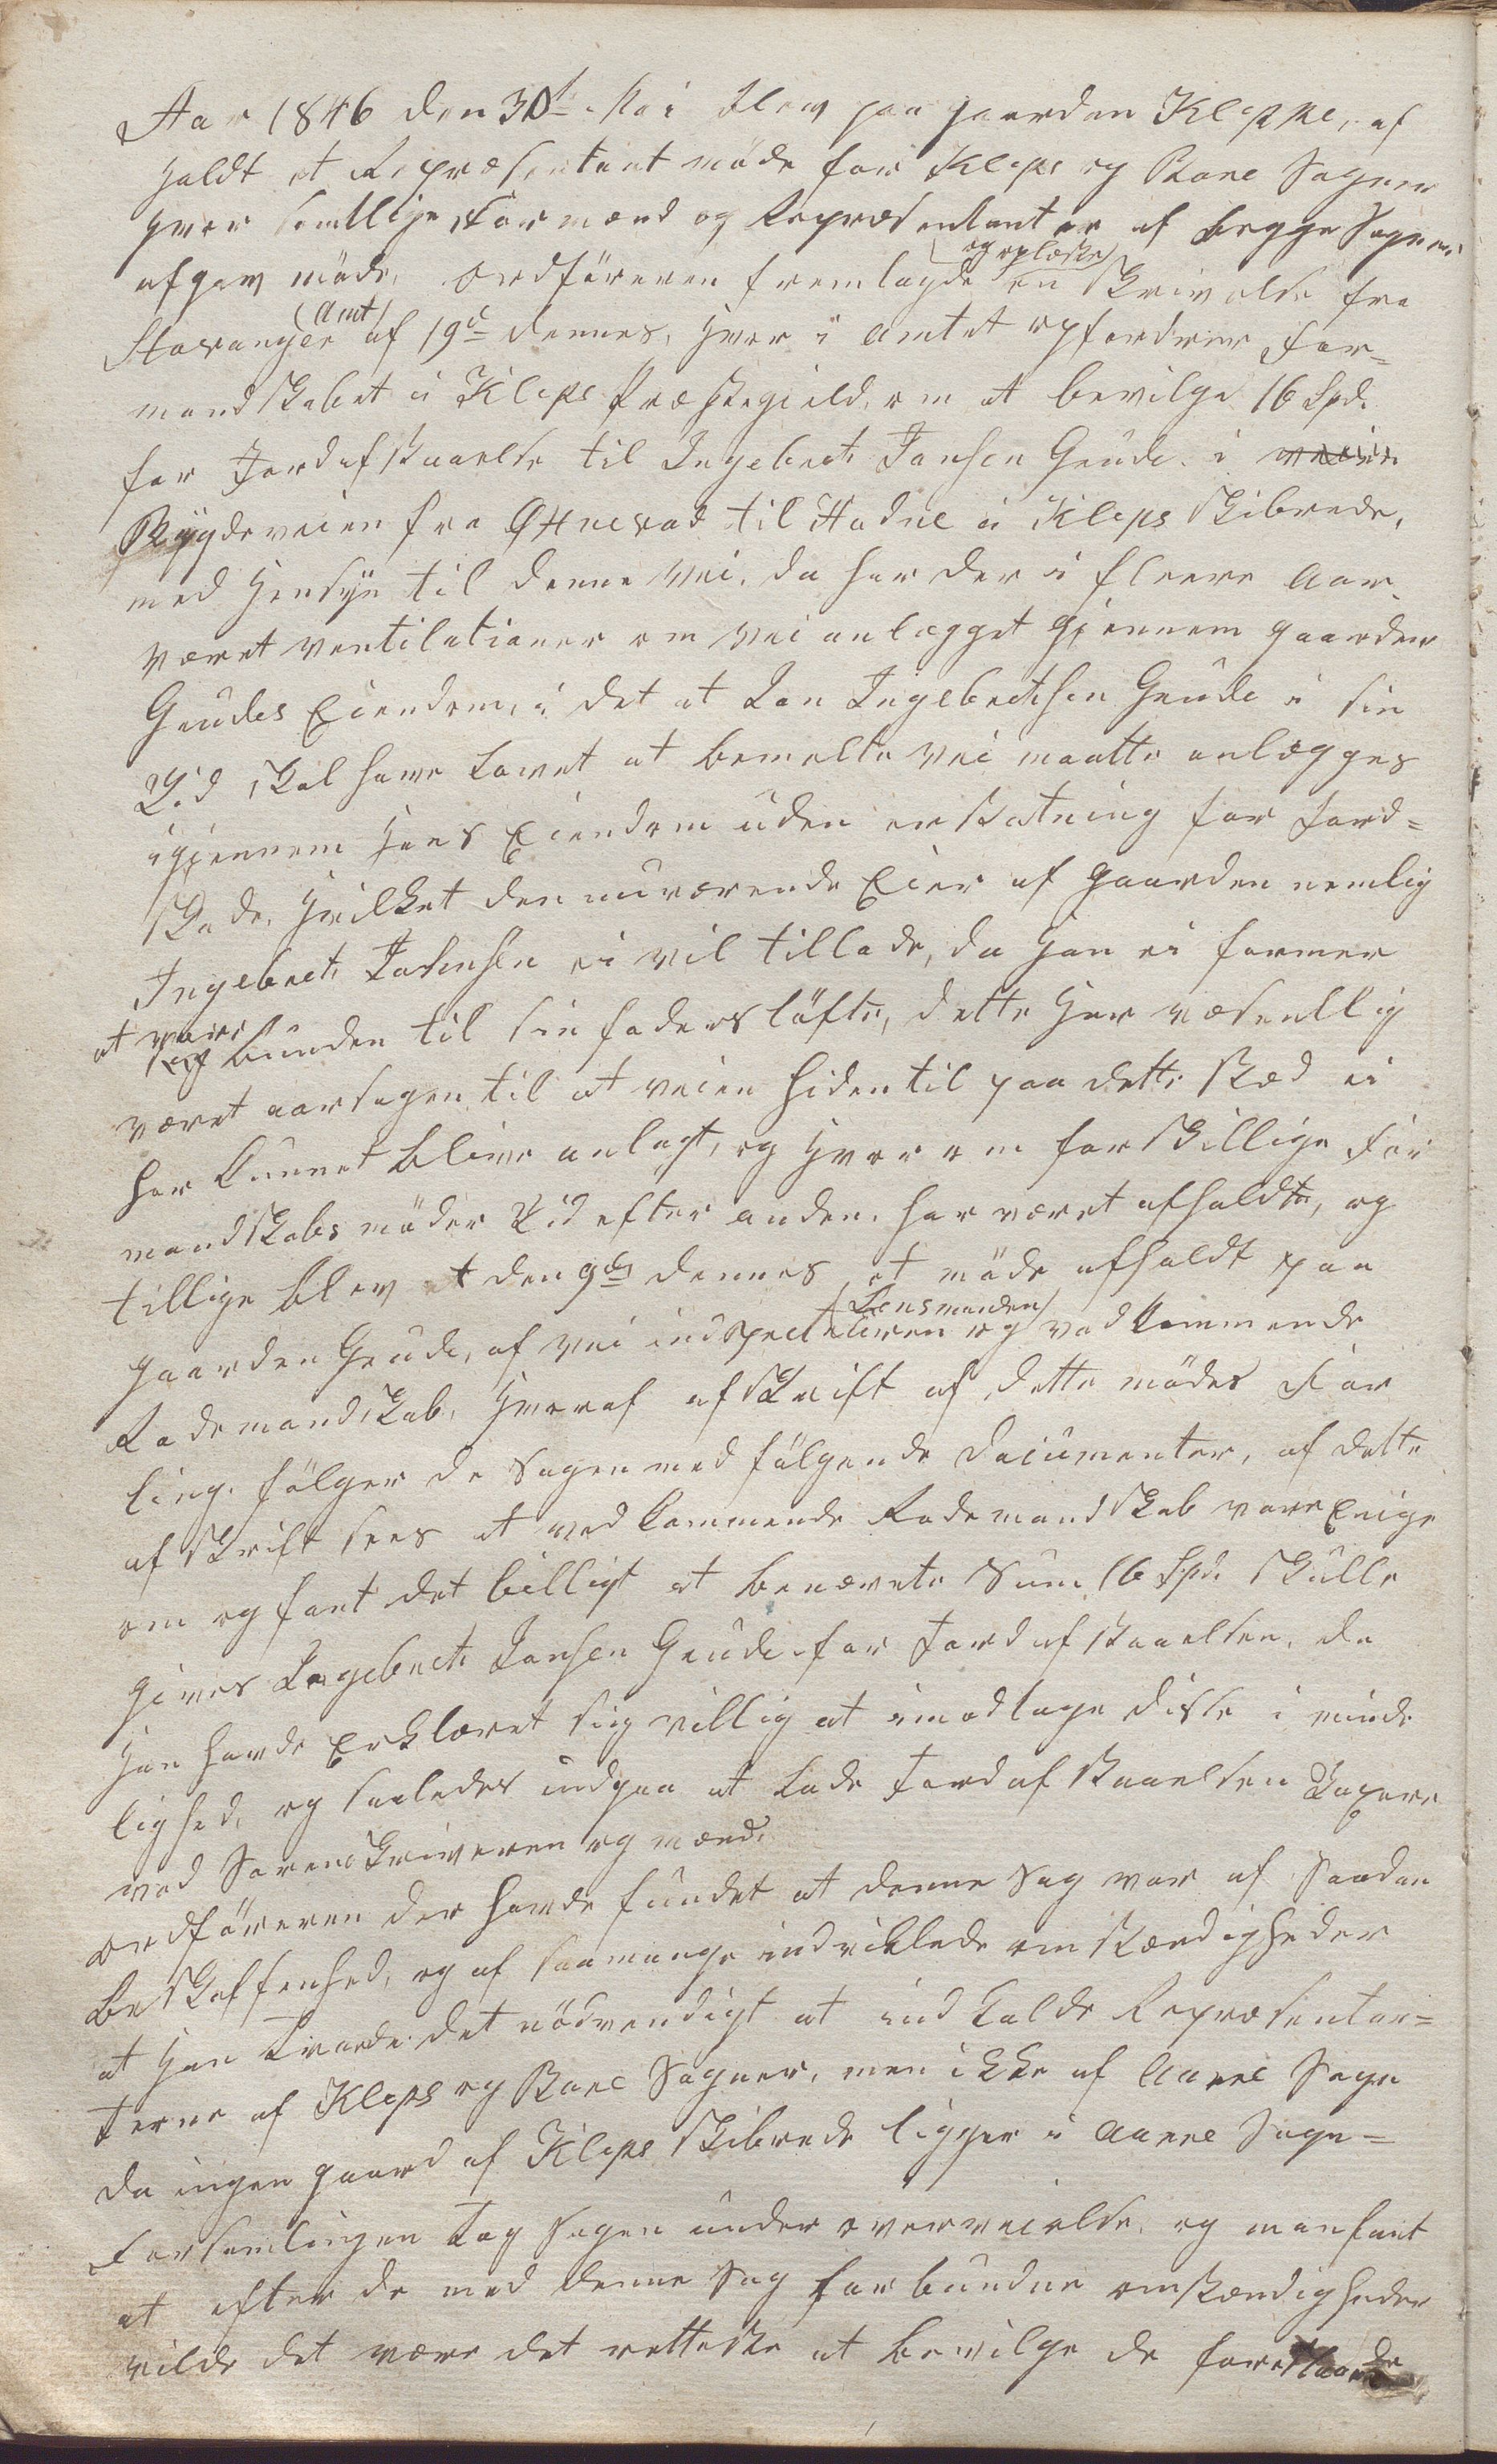 Aar 1846 den 30t Mai blev paa gaarden Kleppe, af
holdt et Repræsentantmöde for Kleps og Bore Sogner
hvor samtlige Formænd og Repræsentanter af begge Sogne
afgav möde, Ordföreren fremlagde og oplæste en Skrivelse fra
Stavanger (Amt) af 19d dennes, hvor i Amtet opfordrer For-
mandskabet i Kleps Præstegield, om at bevilge 16 Spd.
for Jordafstaaelse til Ingebret Jansen Grude i veien
Bygdeveien fra Øxnevad til Hodne i Kleps Skibrede,
med Hensyn til denne vei, da har der i fleere Aar
været ventilationer om vei anlægget gjennem gaarden
Grudes Eiendom, i det at Jan Ingebretsen Grude i sin
Tid skal have Lovet at bemelte vei maatte anlægges
igjennem hans Eiendom uden erstatning for Jord-
skade, hvilket den nuværende Eier af gaarden nemlig
Ingebret Jansen ei vil tillade, da han ei formener
at være bunden til sin faders löfte, dette har væsentlig
været aarsagen til at veien hidentil paa dette stæd ei
har kunnet blive anlagt, og hvorom forskillige For
mandskabs möder Tid efter anden har været afholdte, og
tillige blev at den 9de dennes et möde afholdt paa
gaarden Grude, af vei inspecteuren Lensmanden og vedkommende
Rodemandskab, hvoraf afskrift af dette mödes For
ling. fölger de Sagen med fölgende Documenter, af dette
afskrift sees at vedkommende Rodemandskab vare Enige
om og fant det billigt at benævnte Sum 16 Spd. skulle
gives Ingebret Jansen Grude for Jordafstaaelsen, da
han havde Erklæret sig villig at imodtage disse i minde
lighed, og saaledes undgaa at Lade Jordafstaaelsen Taxere
ved Sorenskriveren og mænd.
Ordföreren der havde fundet at denne Sag var af saadan
beskaffenhed, og af saamange indviklede omstændigheder
at han troede det nödvendigt at indkalde Repræsentan-
terne af Kleps og Bore Sogner, men ikke af Orre Sogn
da ingen gaard af Kleps Skibrede ligger i Orre Sogn-
Forsamlingen tog sagen under overveielse, og man fant
at efter de med denne Sag forbundne omstændigheder
vilde det være det retteste at bevilge de forestaaende